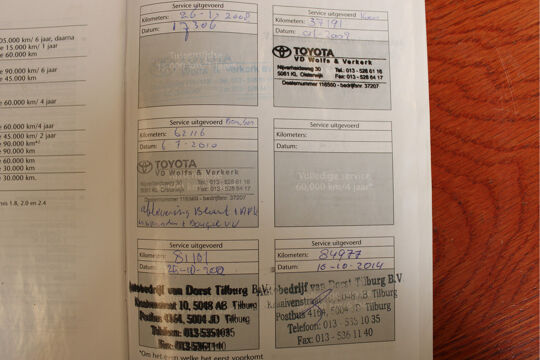 05.000 km/ 6 jaar, daarna
e 15.000 km/ 1 jaar
60.000 km.
e 90.000 km/ 6 jaar
e 45.000 km.
60.000 km/ 4 jaar
60.000 km/4 jaar
e 45.000 km/ 2 jaar
e 90.000 km*²
e 60.000 km
e 30.000 km
e 30.000 km.
nis 1.8, 2.0 en 2.4
Service uitgevoerd
Kilometers: 26-1-2008
Datum: 17306
Tussentijdse
Service uitgevoerd
Kilometers: 37191
Datum: 01-2009
TOYOTA
VD Wolfs & Verkerk
Nijverheidsweg 30 Tel.: 013 - 528 61 16
5061 KL Oisterwijk Fax: 013 - 528 64 17
Dealernummer 116560 - bedrijfsnr. 37207
Service uitgevoerd
Kilometers: 62116
Datum: 6 7-2010
TOYOTA
VD Wolfs & Verkerk
Nijverheidsweg 30 Tel.: 013 - 528 61 16
5061 KL Oisterwijk Fax: 013 - 528 64 17
Dealernummer 116560 - bedrijfsnr. 37207
Service uitgevoerd
Kilometers:
Datum:
Volledige service
60.000 km/4 jaar*
Service uitgevoerd
Kilometers: 81101
Datum:
Autobedrijf van Dorst Tilburg B.V.
Kraaivenstraat 10, 5048 AB Tilburg
Postbus 4164, 5004 JD Tilburg
Telefoon: 013-5351035
Fax: 013-5361140
Service uitgevoerd
Kilometers: 84977
Datum: 16-10-2014
Autobedrijf van Dorst Tilburg B.V
Kraaivenstraat 10, 5048 AB Tilburg
Postbus 4164, 5004 JD Tilburg
Telefoon: 013 - 535 10 35
Fax: 013 - 536 11 40
*Om het even welke het eerst voorkomt